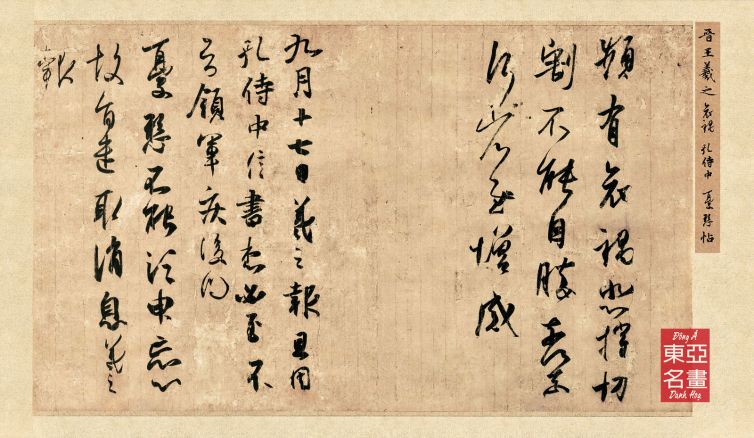 晉王羲之 哀禍 孔侍中 憂懸帖
頻有哀禍悲摧切
割不能自勝奈何奈
何省慰增感
九月十七日羲之報且因
孔侍中信書想必至不
知領軍疾後問
憂懸不能須臾忘心
故旨遣取消息羲之
報
Đông Á
東亞
名畫
Danh Họa